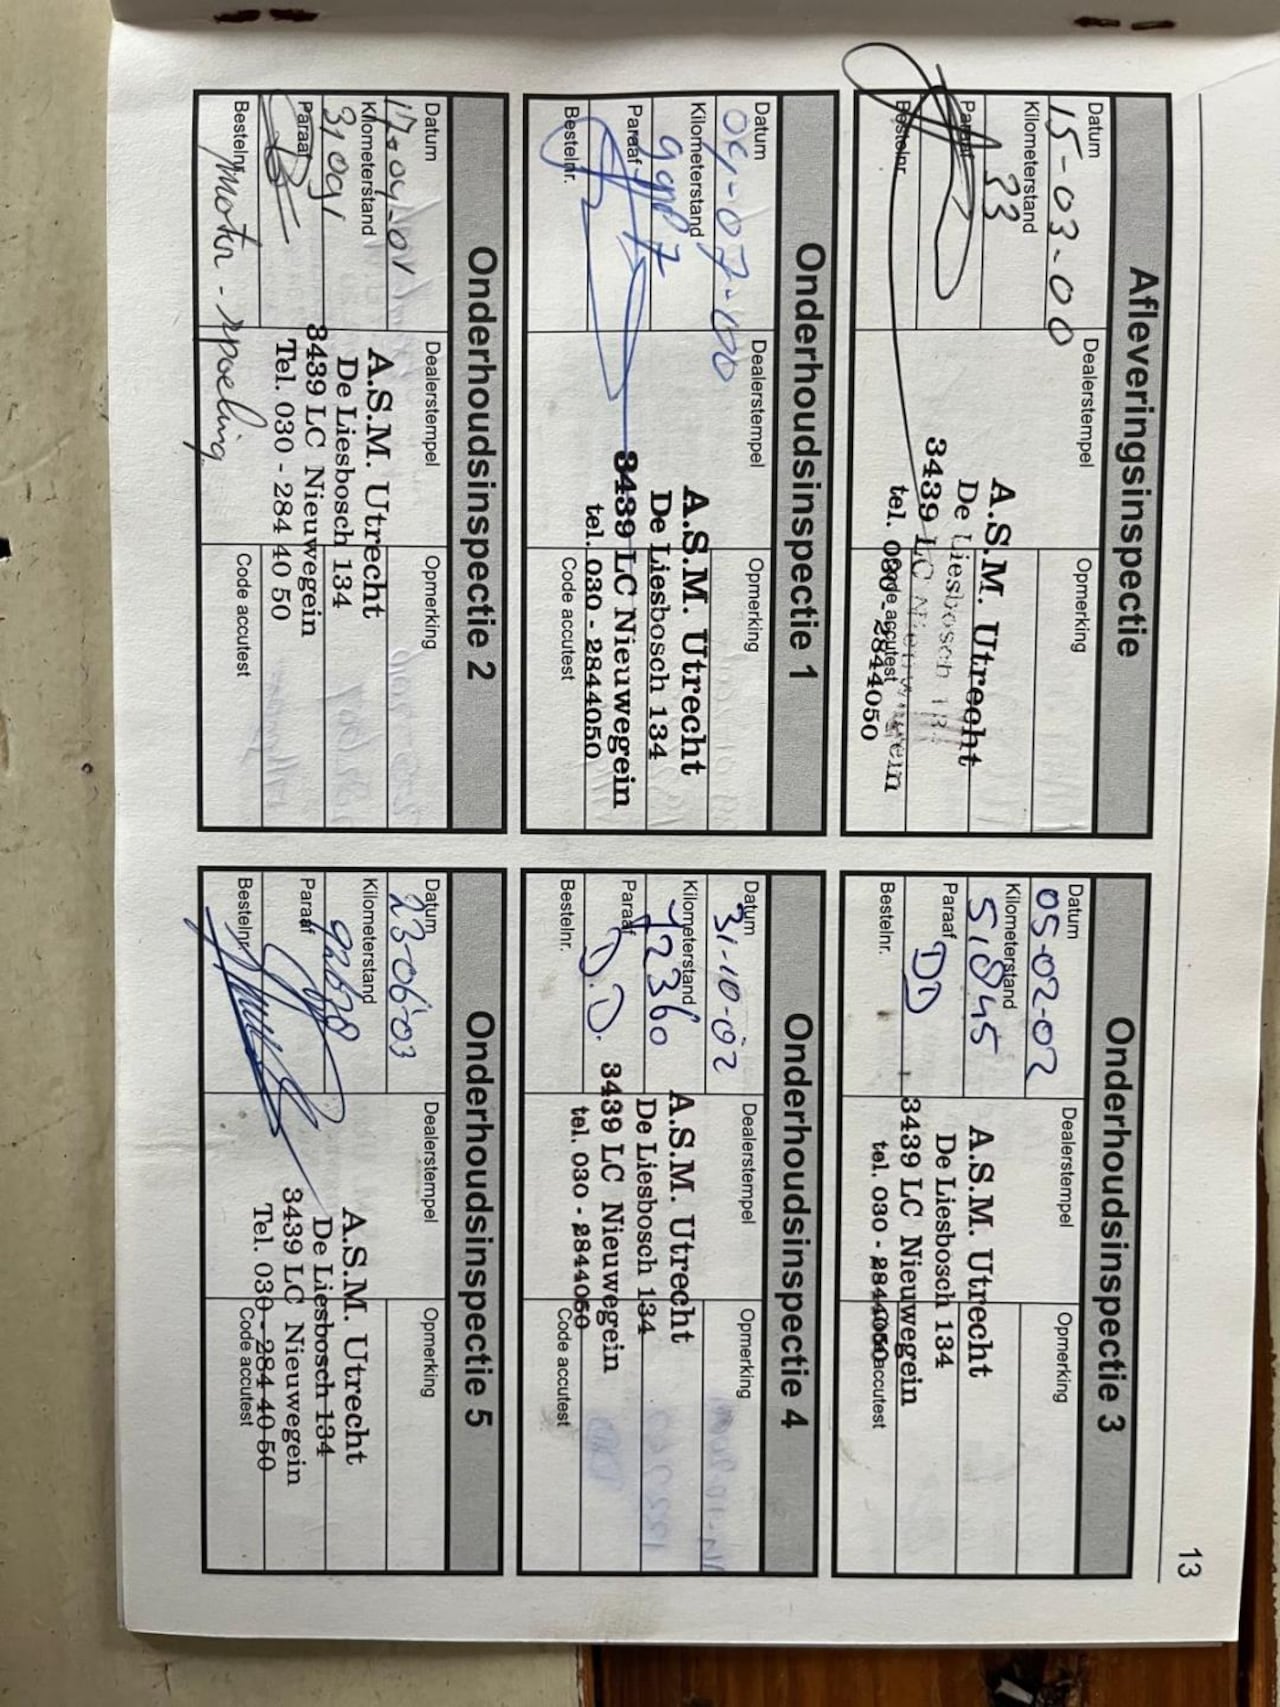 13
Afleveringsinspectie
Datum
15-03-00
Dealerstempel
Opmerking
Kilometerstand
33
Paraaf
Bestelnr.
Code accutest
A.S.M. Utrecht
De Liesbosch 134
3439 LC Nieuwegein
tel. 030 - 2844050
Onderhoudsinspectie 1
Datum
Dealerstempel
Opmerking
Kilometerstand
Paraaf
Bestelnr.
Code accutest
A.S.M. Utrecht
De Liesbosch 134
3439 LC Nieuwegein
tel. 030 - 2844050
Onderhoudsinspectie 2
Datum
Dealerstempel
Opmerking
Kilometerstand
Paraaf
Bestelnr.
motor - spoeling
Code accutest
A.S.M. Utrecht
De Liesbosch 134
3439 LC Nieuwegein
Tel. 030 - 284 40 50
Onderhoudsinspectie 3
Datum
05-02-02
Dealerstempel
Opmerking
Kilometerstand
51845
Paraaf
DD
Bestelnr.
accutest
A.S.M. Utrecht
De Liesbosch 134
3439 LC Nieuwegein
tel. 030 - 2844050
Onderhoudsinspectie 4
Datum
31-10-02
Dealerstempel
Opmerking
Kilometerstand
72360
Paraaf
D.D.
Bestelnr.
Code accutest
A.S.M. Utrecht
De Liesbosch 134
3439 LC Nieuwegein
tel. 030 - 2844050
Onderhoudsinspectie 5
Datum
23-06-03
Dealerstempel
Opmerking
Kilometerstand
Paraaf
Bestelnr.
Code accutest
A.S.M. Utrecht
De Liesbosch 134
3439 LC Nieuwegein
Tel. 030 - 284 40 50